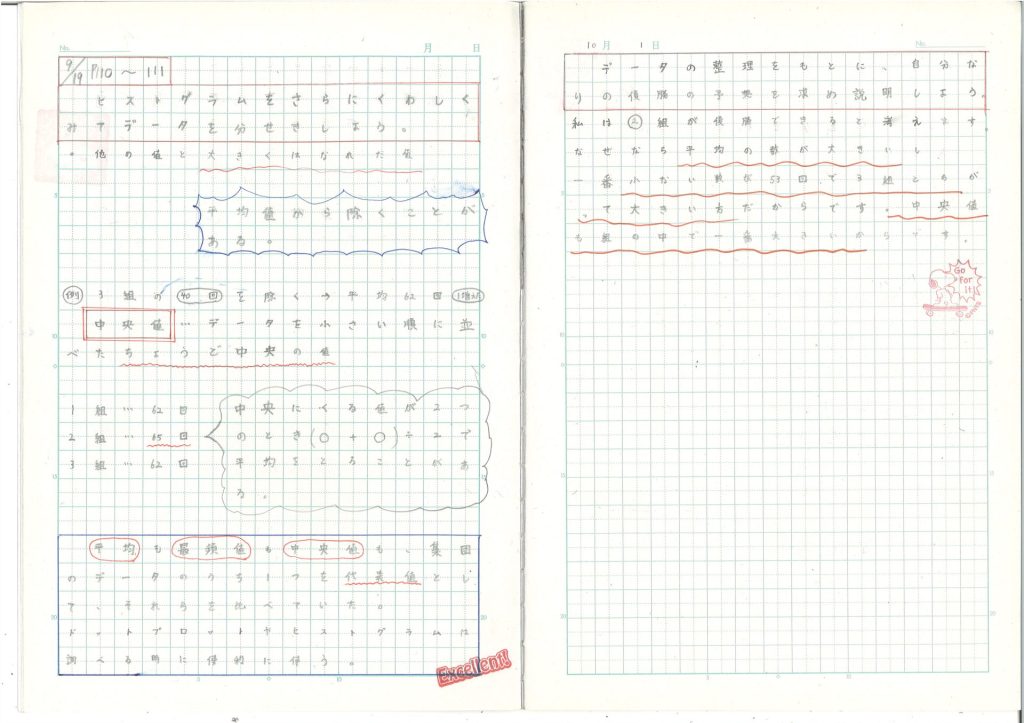 No.
月 日
9/19 P110～111
ヒストグラムをさらにくわしく
みてデータを分せきしよう。
・他の値と大きくはなれた値
平均値から除くことが
ある。
例 3組の40回を除く→平均62回 1増えた
中央値…データを小さい順に並
べたちょうど中央の値
1組…62回
2組…65回
3組…62回
中央にくる値が2つ
のとき(○+○)÷2で
平均をとることがあ
る。
平均も最頻値も中央値も、集団
のデータのうち1つを代表値とし
て、それらを比べていた。
ドットプロットやヒストグラムは
調べる時に便利に使う。
Excellent!
10月 1日
No.
データの整理をもとに、自分な
りの優勝の予想を求め説明しよう。
私は②組が優勝できると考えます。
なぜなら平均の数が大きいし
一番小ない数が53回で3組とちが
って大きい方だからです。中央値
も組の中で一番大きいからです。
Go
For
It!